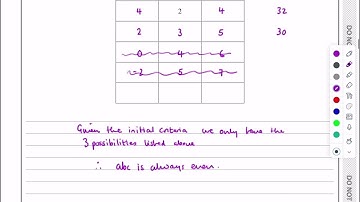 4 2 4 32
2 3 5 30
0 4 6
-2 5 7
Given the initial criteria we only have the
3 possibilities listed above
∴ abc is always even.
DO NO
DO NOT